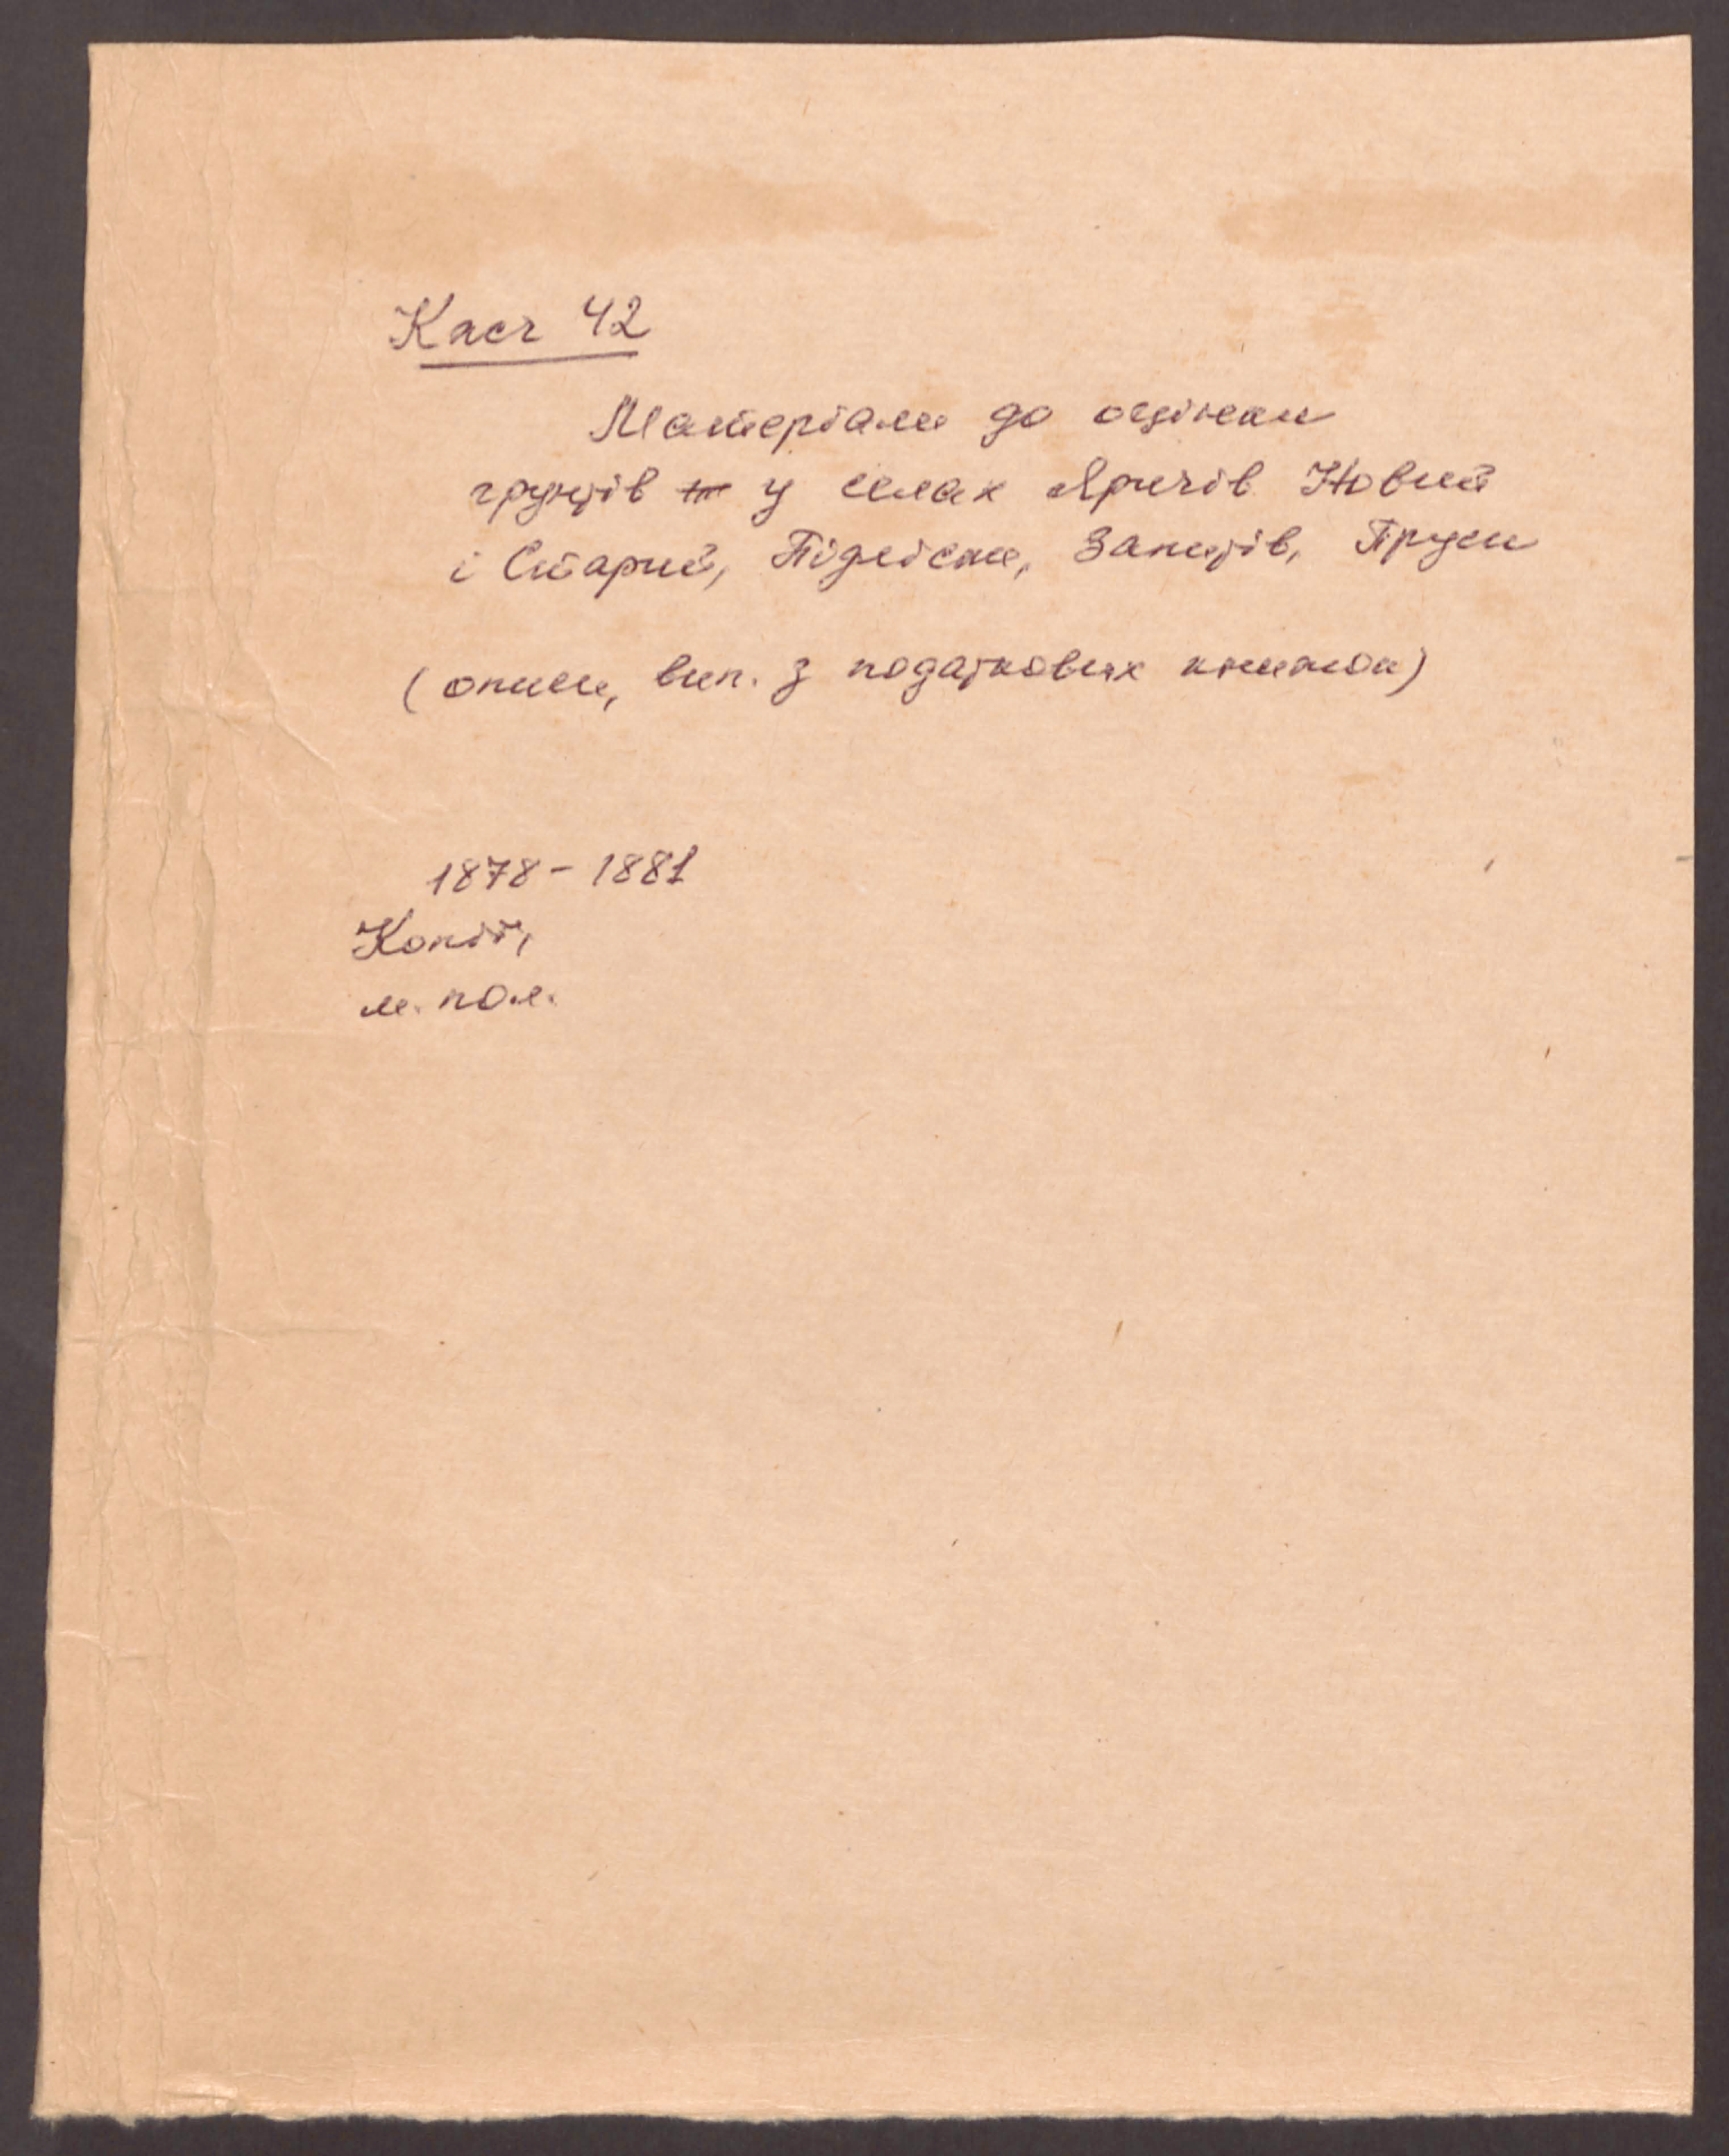 Каст 42
Матеріали до оцінки
грунтів у селах Яричів Новий
і Старий, Підліски, Запитів, Пруси
(описи, вип. з податкових книжок)
1878 - 1881
Копії,
м. пол.